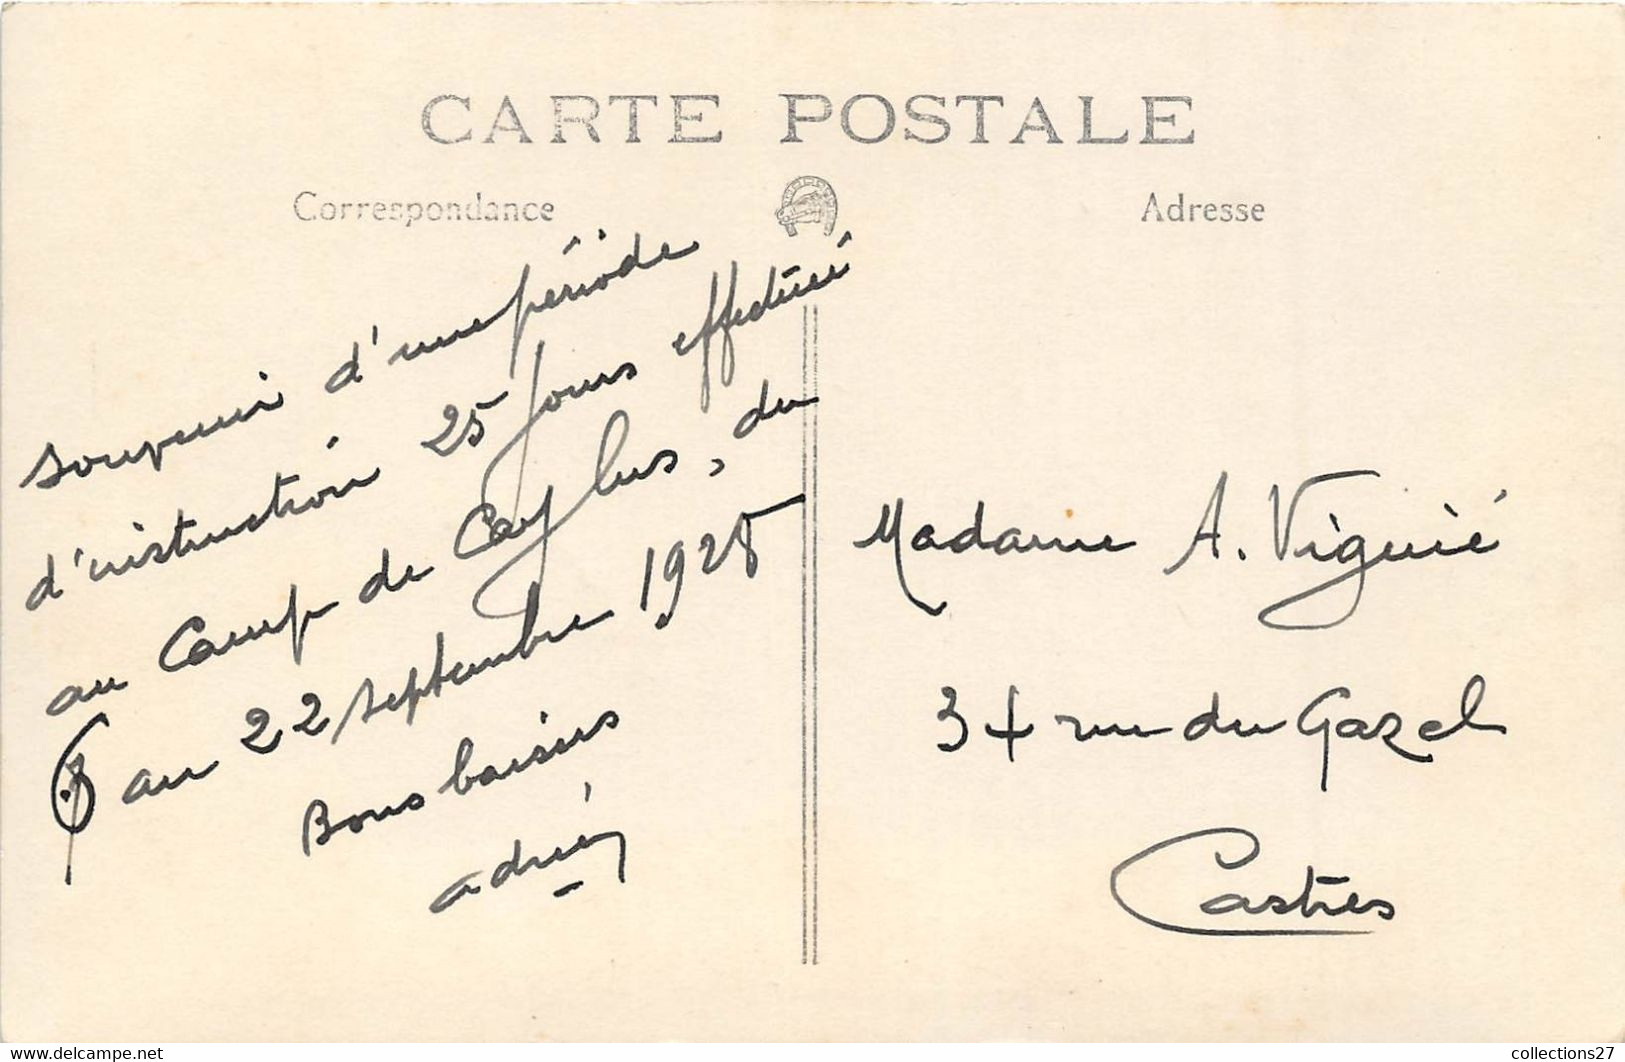 CARTE POSTALE
Correspondance
Adresse
Souvenir d'une période
d'instruction 25 jours effectuée
au Camp de Caylus, du
au 22 septembre 1928
Bons baisers
adrien
Madame A. Viguié
34 rue du Gazel
Castres
www.delcampe.net
collections27